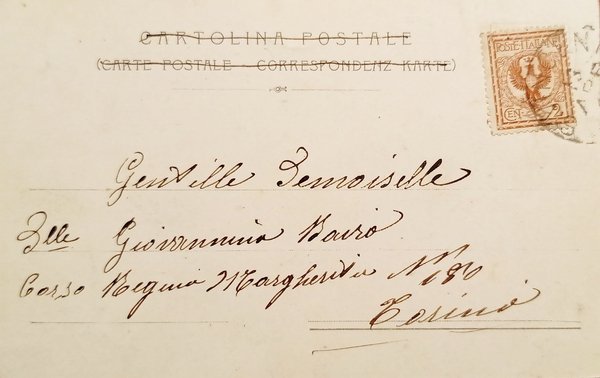 CARTOLINA POSTALE
(CARTE POSTALE - CORRESPONDENZ-KARTE)
POSTE ITALIANE
CEN 2
Gentille Demoiselle
Mlle Giovannina
Corso Regina Margherita N° 180
Torino